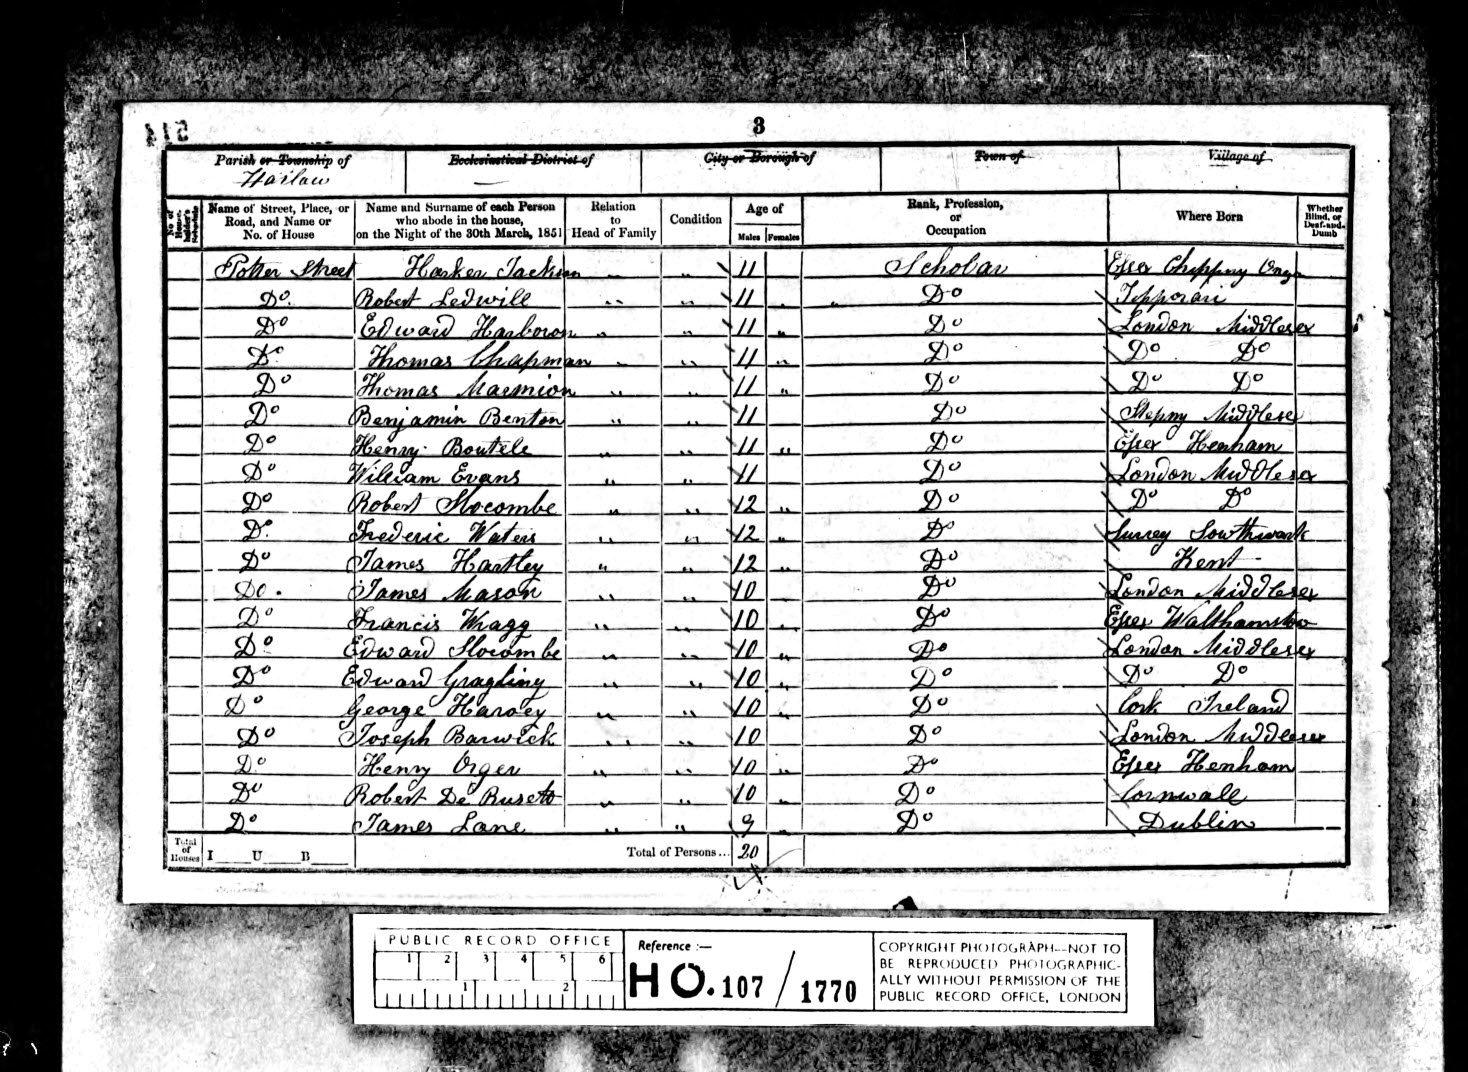 3
Parish or Township of Ecclesiastical District of City or Borough of Town of Village of
Harlow
No of House-holder's Schedule Name of Street, Place, or Road, and Name or No. of House Name and Surname of each Person who abode in the house, on the Night of the 30th March, 1851 Relation to Head of Family Condition Age of Males Females Rank, Profession, or Occupation Where Born Whether Blind, or Deaf-and-Dumb
Potter Street Harker Jackson " " 11 Scholar Essex Chippny Ongar
Do. Robert Ledwill " " 11 " " Do Tipporari
Do Edward Harborow " " 11 " Do London Middlesex
Do Thomas Chapman " " 11 " Do Do Do
Do Thomas Marmion " " 11 " Do Do Do
Do Benjamin Benton " " 11 Do Stepny Middlesex
Do Henry Boutele " " 11 " Do Essex Henham
Do William Evans " " 11 Do London Middlesex
Do Robert Slocombe " " 12 " Do Do Do
Do Frederic Waters " " 12 " Do Surrey Southwark
Do James Hartley " " 12 " Do Kent
Do. James Mason " " 10 Do London Middlesex
Do Francis Wragg " " 10 " Do Essex Walthamstow
Do Edward Slocombe " " 10 " Do London Middlesex
Do Edward Gragling " " 10 " Do Do Do
Do George Harvey " " 10 " Do Cork Ireland
Do Joseph Barwick " " 10 Do London Middlesex
Do Henry Orger " " 10 " Do Essex Henham
Do Robert De Ruseto " " 10 " Do Cornwall
Do James Lane " " 9 " Do Dublin
Total of Houses I U B Total of Persons... 20
PUBLIC RECORD OFFICE
1 2 3 4 5 6
1 2
Reference :—
HO. 107 / 1770
COPYRIGHT PHOTOGRAPH—NOT TO
BE REPRODUCED PHOTOGRAPHIC-
ALLY WITHOUT PERMISSION OF THE
PUBLIC RECORD OFFICE, LONDON